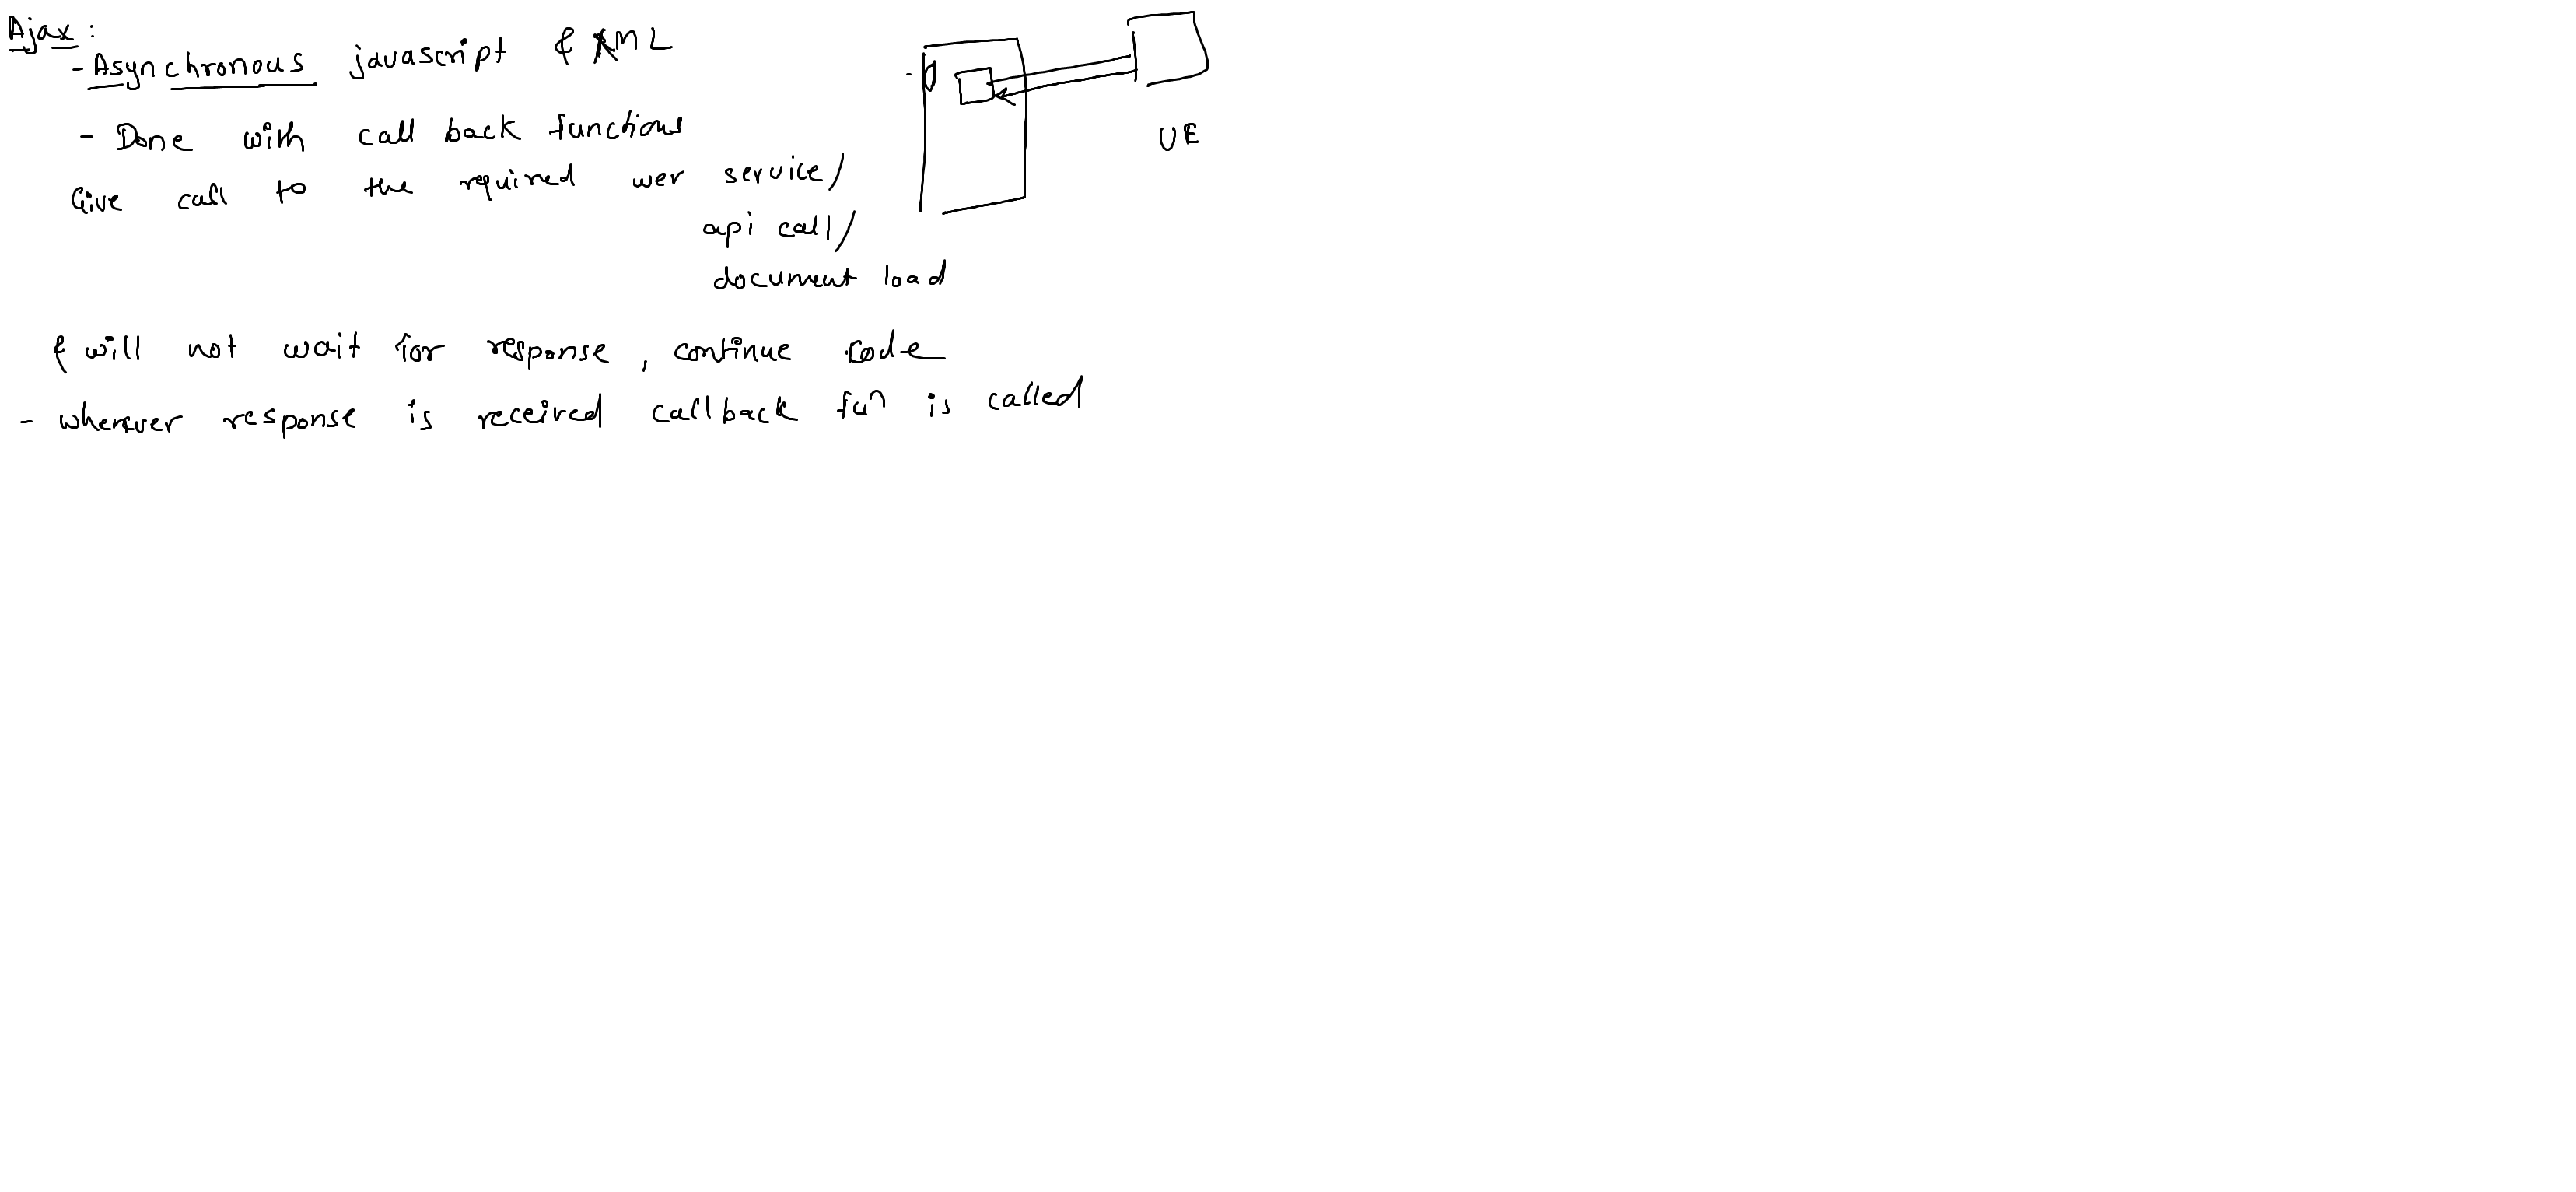 Ajax :
- Asynchronous javascript & XML
- Done with call back functions
Give call to the required wer service/
api call/
document load
& will not wait for response, continue code
- whenever response is received callback fun is called
UE